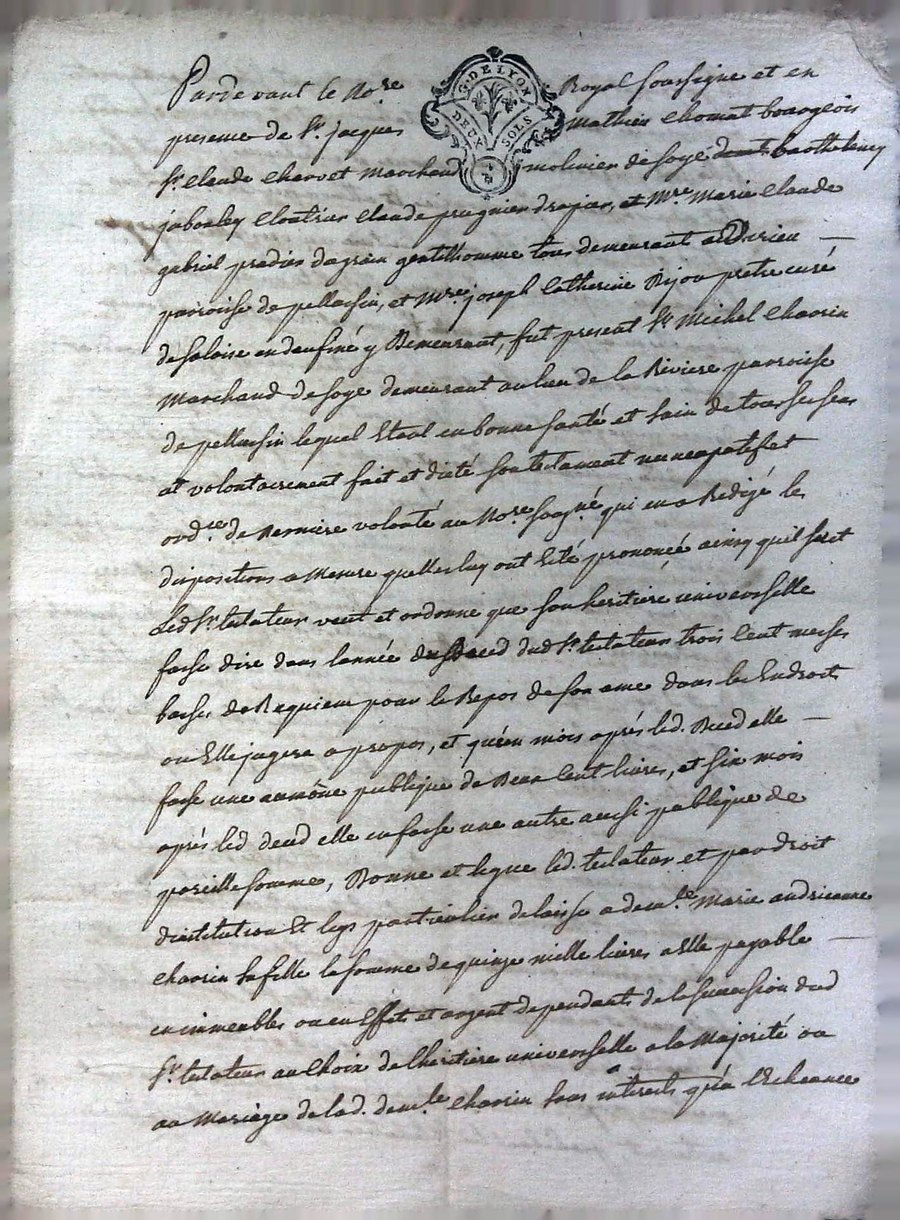 Pardevant le No.re Royal soussigné et en
G. DE LYON
DEUX SOLS
presence de Sr. jacques Mathieu Chomat bourgeois
Sr. Claude Charvet Marchand molinier de soye barthelemy
jaboulay Cloutrier Claude prugnier drapier, et Mre Marie Claude
gabriel pradier dagrain gentilhomme tous demeurant a Virieu
parroisse de pellussin, et Mre joseph Catherine Rijou pretre curé
de salaise en daufiné y Demeurant, fut present Sr. Michel Chavrin
Marchand de soye demeurant au lieu de la Riviere parroisse
de pellussin lequel Etant en bonne santé et sain de tous ses sens
at volontairement fait et dicté son testament nuncupatif et
ord.re de Derniere volonté au No.re soussigné qui en a Redigé les
dispositions a Mesure quelles luy ont Eté prononcé ainsy quil suit
Led Sr. testateur veut et ordonne que son heritiere universelle
fasse dire dans lannée du deced dud Sr. testateur trois Cent messes
basses de Requiem pour le Repos de son ame dans les Endroits
ou Elle jugera a propos, et qu'un mois après led. Deced elle
fasse une aumône publique de Deux Cent livres, et six mois
après led deced elle en fasse une autre aussi publique de
pareille somme, Donne et legue led. testateur et par droit
dinstitution Et legs particulier delaisse a dem.lle Marie andrieanne
Chavrin sa fille la somme de quinze mille livres a Elle payable
en immeubles ou en Effets et argent dependants de la succession dud
Sr. testateur au Choix de lheritiere universelle a la Majorité ou
au Mariage de lad. dem.lle Chavrin sans interets qu'a l'Echeance